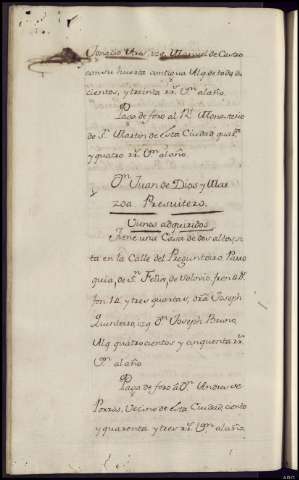 Ignacio Vra, izq. Manuel de Castro
con su huerta contigua Alq. de todo dos
cientos, y treinta rr.ˢ V.ⁿ al año.
Paga de foro al R.ˡ Monasterio
de S.ⁿ Martin de esta Ciudad, quar.ᵗᵃ
y quatro rr.ˢ V.ⁿ al año.
D.ⁿ Juan de Dios y Mar
zoa Presvitero.
Vienes adquiridos
Tiene una Casa de dos altos, si
ta en la Calle del Preguntoiro Parro
quia, de S.ⁿ Felix, de Solovio, fren.
fon. 14, y tres quartas, dra. Joseph
Quinteiro, izq. D.ⁿ Joseph Bruno,
Alq. quatrocientos y cinquenta rr.ˢ
V.ⁿ al año
Paga de foro à D.ⁿ Andres de
Porras, Vecino de esta Ciudad, ciento
y quarenta y tres rr.ˢ V.ⁿ al año.